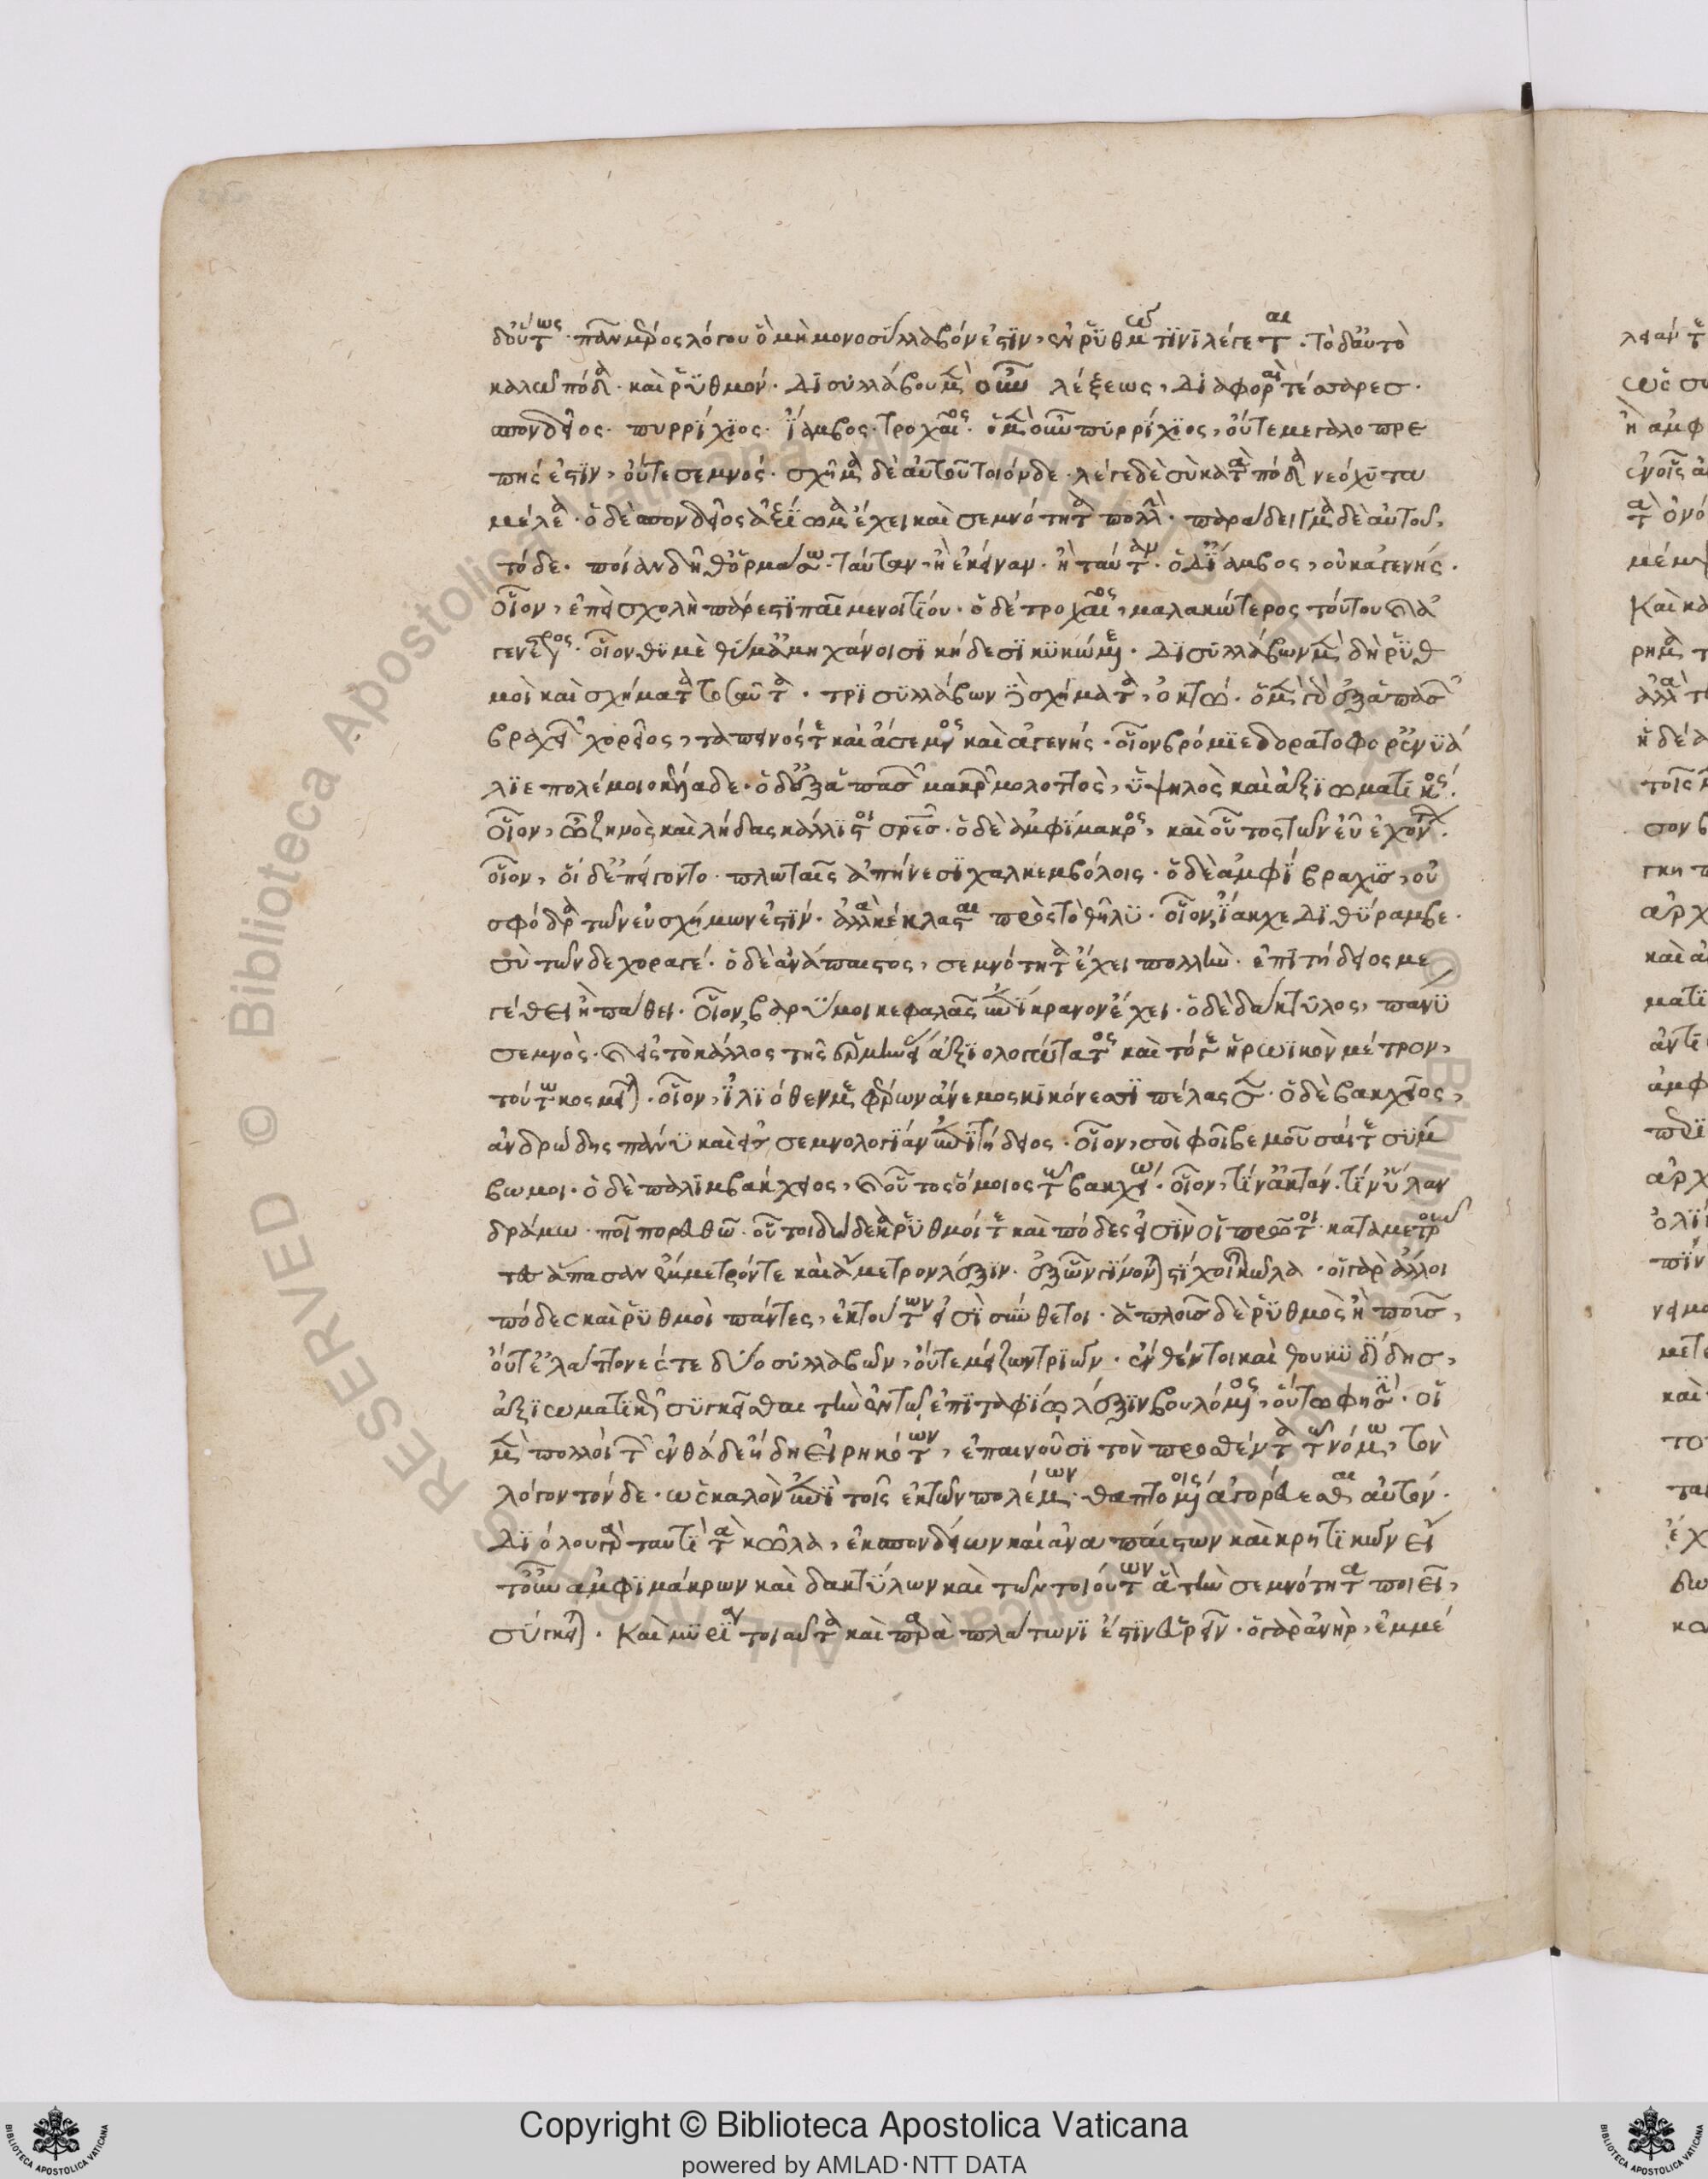 δ' οὕτως· πᾶν μέρος λόγου ὃ μὴ μονοσύλλαβόν ἐστιν, ἐν ῥυθμῶ τινι λέγεται. τὸ δ' αὐτὸ
καλῶ πόδα καὶ ῥυθμόν. δισυλλάβου μὲν οὖν λέξεως, διαφοραὶ τέσσαρες.
σπονδεῖος· πυρρίχιος· ἴαμβος· τροχαῖος. ὁ μὲν οὖν πυρρίχιος, οὔτε μεγαλοπρε
πής ἐστιν, οὔτε σεμνός. σχῆμα δὲ αὐτοῦ τοιόνδε. λέγε δὲ σὺ κατὰ πόδα νεόχυτα
μέλεα. ὁ δὲ σπονδεῖος ἀξίωμα ἔχει καὶ σεμνότητα πολλήν. παράδειγμα δὲ αὐτοῦ,
τόδε. ποίαν δῆθ' ὁρμάσω. ταύταν, ἢ ἐκείναν. ἢ ταύταν. ὁ δ' ἴαμβος, οὐκ ἀγενής.
οἷον, ἐπεὶ σχολὴ πάρεστι παῖ μενοιτίου. ὁ δὲ τροχαῖος, μαλακώτερος τούτου καὶ ἀ
γενέστερος. οἷον θυμὲ θύμ' ἀμηχάνοισι κήδεσι κυκώμενε. δισυλλάβων μὲν δὴ ῥυθ
μοὶ καὶ σχήματα τοσαῦτα. τρισυλλάβων δὲ σχήματα, ὀκτώ. ὁ μὲν γὰρ ἐξ ἁπασῶν
βραχειῶν χορεῖος, ταπεινός τε καὶ ἄσεμνος καὶ ἀγενής. οἷον βρόμιε δορατοφόρ' ἐνυά
λιε πολεμοκέλαδε. ὁ δ' ἐξ ἁπασῶν μακρῶν μολοττὸς, ὑψηλὸς καὶ ἀξιωματικός.
οἷον, ὦ ζηνὸς καὶ λήδας κάλλιστοι σωτῆρες. ὁ δὲ ἀμφίμακρος, καὶ οὗτος τῶν εὖ ἐχόντων.
οἷον, οἱ δ' ἐπείγοντο πλωταῖς ἀπήνεσι χαλκεμβόλοις. ὁ δὲ ἀμφίβραχυς, οὐ
σφόδρα τῶν εὐσχήμων ἐστίν. ἀλλὰ κέκλασται πρὸς τὸ θῆλυ. οἷον, ἴακχε διθύραμβε.
σὺ τῶνδε χοραγέ. ὁ δὲ ἀνάπαιστος, σεμνότητα ἔχει πολλὴν. ἐπιτήδειος με
γέθει ἢ πάθει. οἷον, βαρύ μοι κεφαλᾶς ἐπίκρανον ἔχει. ὁ δὲ δάκτυλος, πάνυ
σεμνὸς. καὶ εἰς τὸ κάλλος τῆς ἑρμηνείας ἀξιολογώτατος καὶ τό γε ἡρωικὸν μέτρον,
τούτω κοσμεῖται. οἷον, ἰλιόθεν με φέρων ἄνεμος κικόνεσσι πέλασσεν. ὁ δὲ βακχεῖος,
ἀνδρώδης πάνυ καὶ εἰς σεμνολογίαν ἐπιτήδειος. οἷον, σοὶ φοῖβε μοῦσαί τε σύμ
βωμοι. ὁ δὲ παλιμβάκχειος, καὶ οὗτος ὅμοιος τῶ βακχείω. οἷον, τίν' ἀκτάν. τίν' ὕλαν
δράμω. ποῖ πορευθῶ. οὗτοι δώδεκα ῥυθμοί τε καὶ πόδες εἰσὶν οἱ πρῶτοι καταμετροῦν
τες ἅπασαν ἔμμετρόν τε καὶ ἄμετρον λέξιν. ἐξ ὧν γίνονται στίχοι καὶ κῶλα. οἱ γὰρ ἄλλοι
πόδες καὶ ῥυθμοὶ πάντες, ἐκ τούτων εἰσὶ σύνθετοι. ἁπλοῦς δὲ ῥυθμὸς ἢ ποῦς,
οὔτ' ἐλάττον ἔσται δύο συλλαβῶν, οὔτε μείζων τριῶν. ἐνθέντοι καὶ θουκυδίδης,
ἀξιωματικῶς συγκεῖσθαι τὴν ἐν τῶ ἐπιταφίω λέξιν βουλόμενος, οὕτω φησὶν. οἱ
μὲν πολλοὶ τῶν ἐνθάδε ἤδη εἰρηκότων, ἐπαινοῦσι τὸν προσθέντα τῶ νόμω, τὸν
λόγον τόνδε. ὡς καλὸν ἐπὶ τοῖς ἐκ τῶν πολέμων θαπτομένοις ἀγορεύεσθαι αὐτόν.
δι' ὅλου γὰρ ταυτὶ τὰ κῶλα, ἐκ σπονδείων καὶ ἀναπαίστων καὶ κρητικῶν εἴ
τουν ἀμφιμάκρων καὶ δακτύλων καὶ τῶν τοιούτων ἃ τὴν σεμνότητα ποιεῖ,
σύγκειται. καὶ μυρία τοιαῦτα καὶ παρὰ πλάτωνι ἔστιν εὑρεῖν. ὁ γὰρ ἀνὴρ, ἐμμέ
Copyright © Biblioteca Apostolica Vaticana
powered by AMLAD·NTT DATA